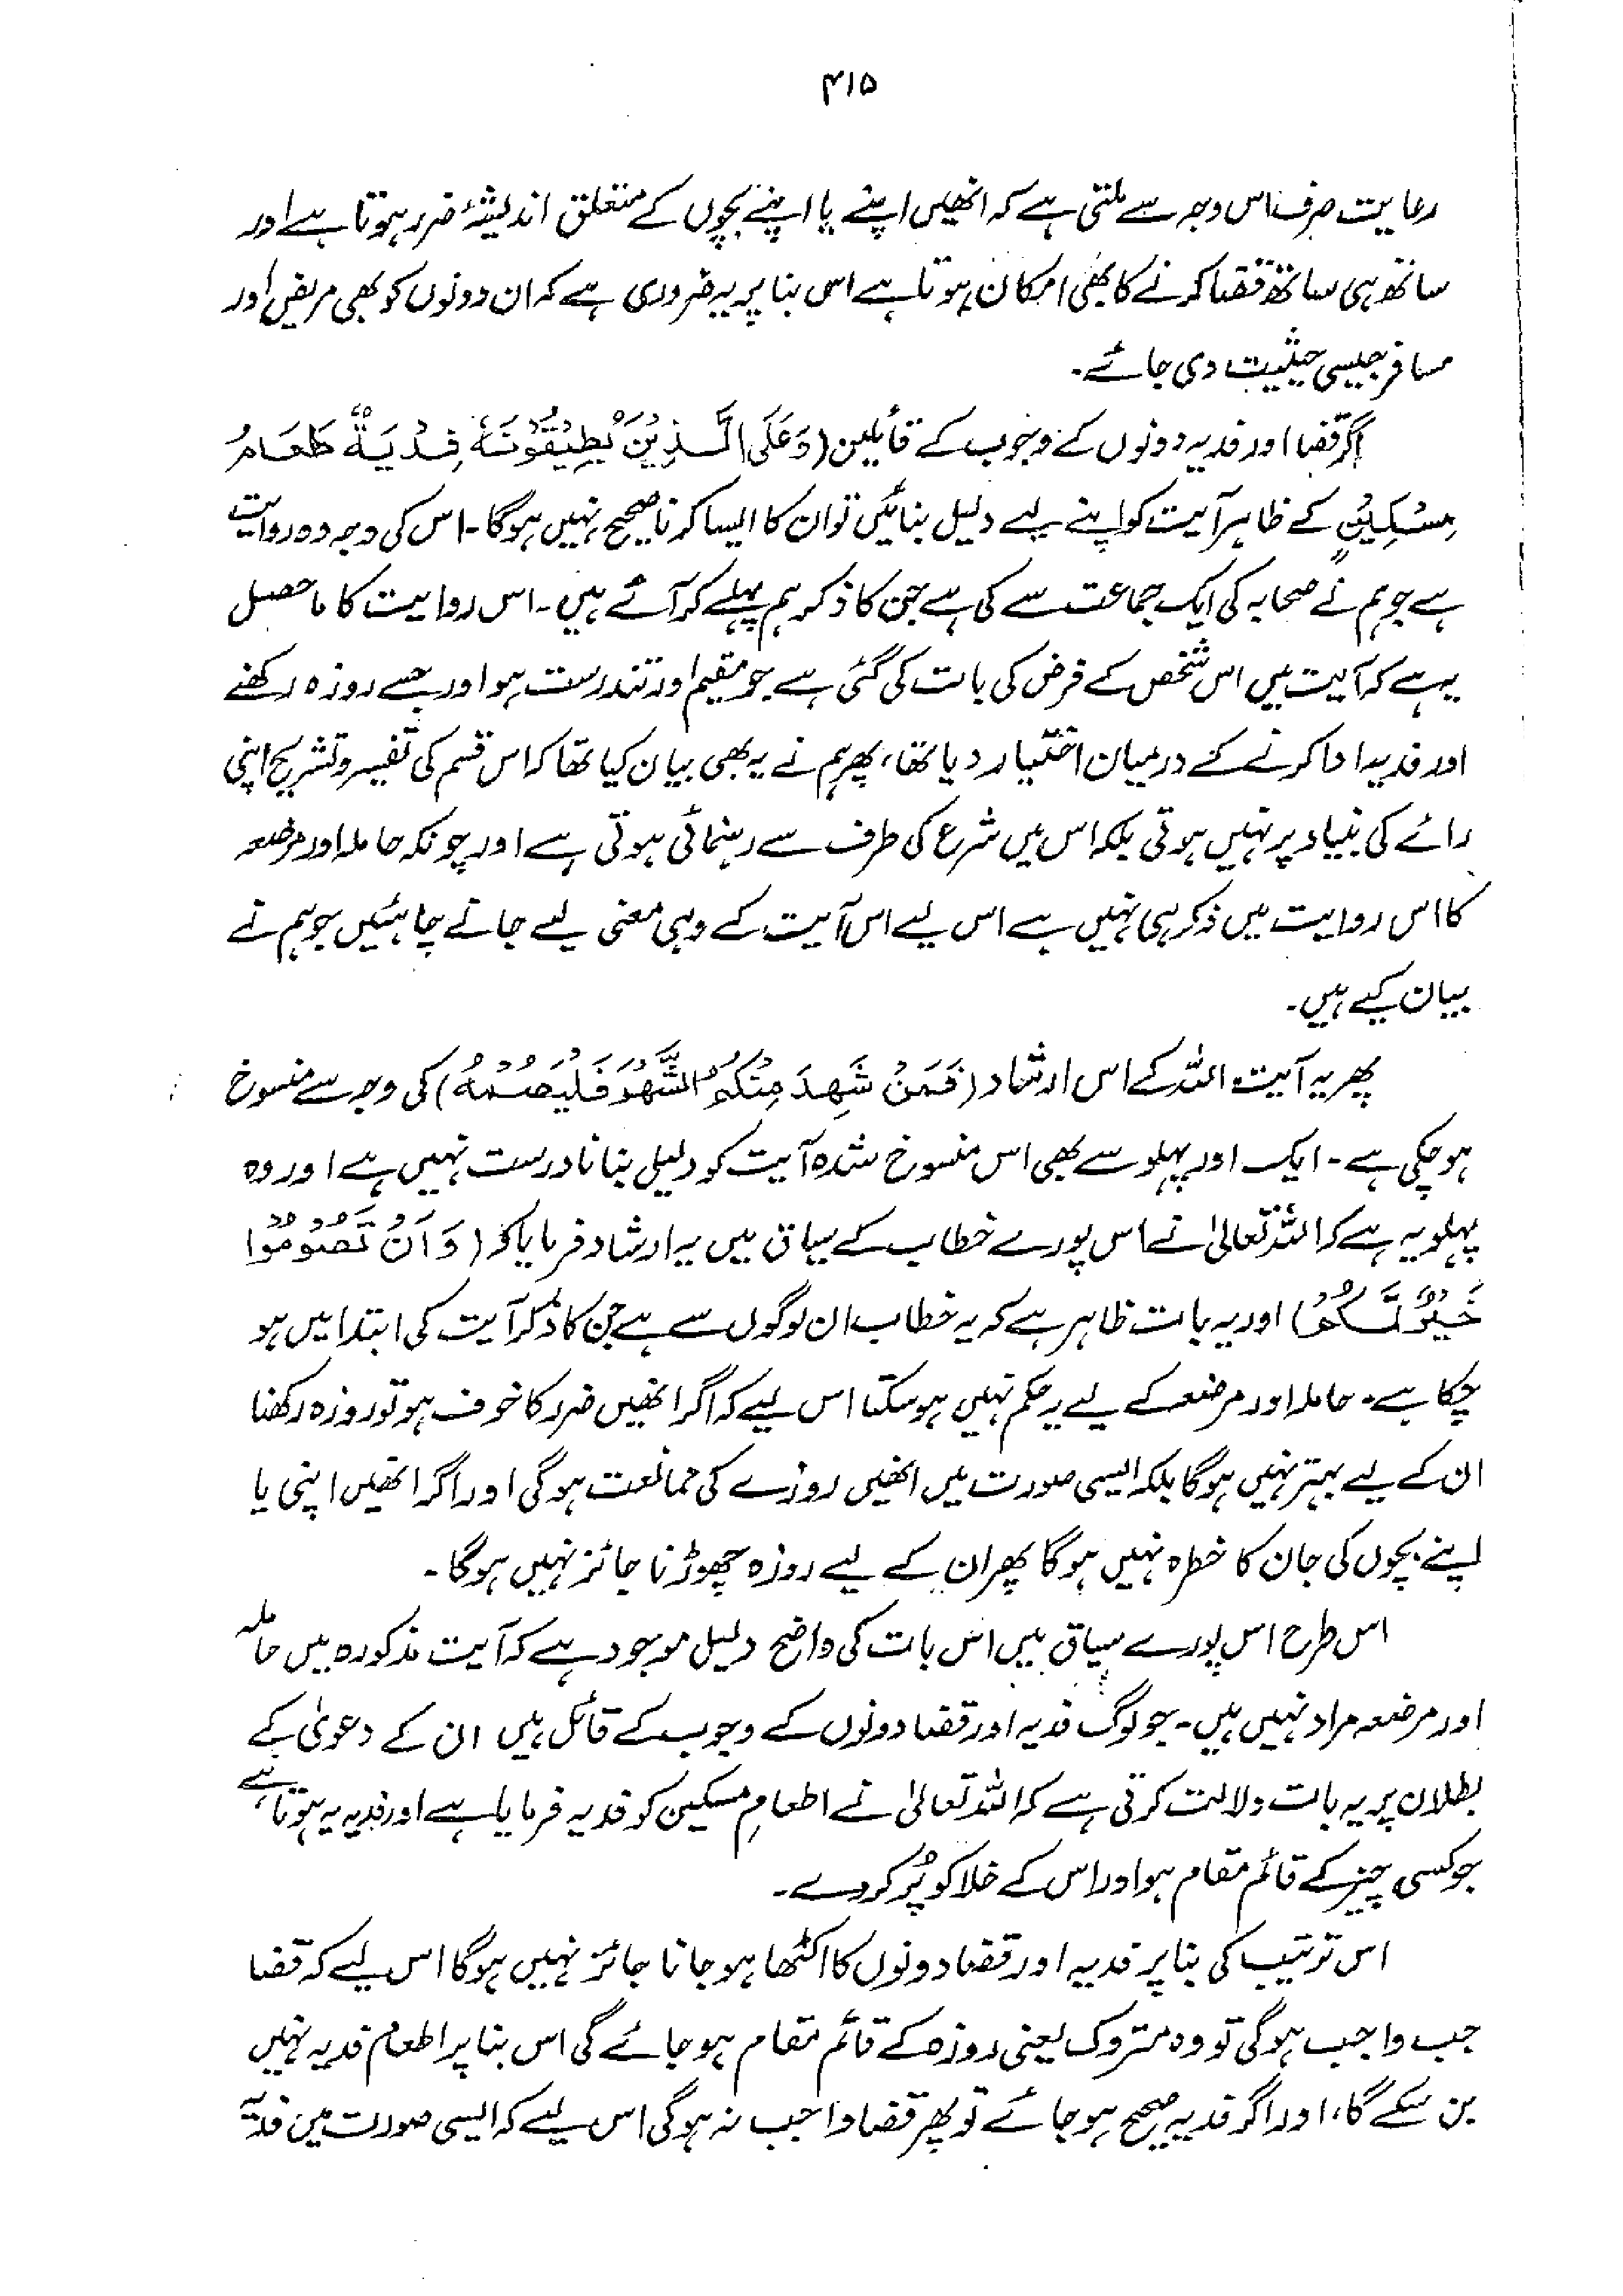 ۴۱۵
رعایت صرف اس وجہ سے ملتی ہے کہ انھیں اپنے یا اپنے بچوں کے متعلق اندیشۂ ضرر ہوتا ہے اور
ساتھ ہی ساتھ قضا کرنے کا بھی امکان ہوتا ہے اسی بنا پر یہ ضروری ہے کہ ان دونوں کو بھی مریض اور
مسافر جیسی حیثیت دی جائے۔
اگر قضا اور فدیہ دونوں کے وجوب کے قائلین (وَعَلَى الَّذِيْنَ يُطِيْقُوْنَهٗ فِدْيَةٌ طَعَامُ
مِسْكِيْنٍ کے ظاہر آیت کو اپنے لیے دلیل بنائیں تو ان کا ایسا کرنا صحیح نہیں ہوگا۔ اس کی وجہ وہ روایت
ہے جو ہم نے صحابہ کی ایک جماعت سے کی ہے جن کا ذکر ہم پہلے کر آئے ہیں۔ اس روایت کا ماحصل
یہ ہے کہ آیت میں اس شخص کے فرض کی بات کی گئی ہے جو مقیم اور تندرست ہو اور جسے روزہ رکھنے
اور فدیہ ادا کرنے کے درمیان اختیار دیا تھا، پھر ہم نے یہ بھی بیان کیا تھا کہ اس قسم کی تفسیر و تشریح اپنی
رائے کی بنیاد پر نہیں ہوتی بلکہ اس میں شرع کی طرف سے رہنمائی ہوتی ہے اور چونکہ حاملہ اور مرضعہ
کا اس روایت میں ذکر ہی نہیں ہے اس لیے اس آیت کے وہی معنی لیے جانے چاہئیں جو ہم نے
بیان کیے ہیں۔
پھر یہ آیت اللہ کے اس ارشاد (فَمَنْ شَهِدَ مِنْكُمُ الشَّهْرَ فَلْيَصُمْهُ) کی وجہ سے منسوخ
ہو چکی ہے۔ ایک اور پہلو سے بھی اس منسوخ شدہ آیت کو دلیل بنانا درست نہیں ہے اور وہ
پہلو یہ ہے کہ اللہ تعالیٰ نے اس پورے خطاب کے سیاق میں یہ ارشاد فرمایا کہ (وَاَنْ تَصُوْمُوْا
خَيْرٌ لَّكُمْ) اور یہ بات ظاہر ہے کہ یہ خطاب ان لوگوں سے ہے جن کا ذکر آیت کی ابتدا میں ہو
چکا ہے۔ حاملہ اور مرضعہ کے لیے یہ حکم نہیں ہو سکتا اس لیے کہ اگر انھیں ضرر کا خوف ہو تو روزہ رکھنا
ان کے لیے بہتر نہیں ہوگا بلکہ ایسی صورت میں انھیں روزے کی ممانعت ہوگی اور اگر انھیں اپنی یا
اپنے بچوں کی جان کا خطرہ نہیں ہوگا پھر ان کے لیے روزہ چھوڑنا جائز نہیں ہوگا۔
اس طرح اس پورے سیاق میں اس بات کی واضح دلیل موجود ہے کہ آیت مذکورہ میں حاملہ
اور مرضعہ مراد نہیں ہیں۔ جو لوگ فدیہ اور قضا دونوں کے وجوب کے قائل ہیں ان کے دعویٰ کے
بطلان پر یہ بات دلالت کرتی ہے کہ اللہ تعالیٰ نے اطعامِ مسکین کو فدیہ فرمایا ہے اور فدیہ یہ ہوتا ہے
جو کسی چیز کے قائم مقام ہو اور اس کے خلا کو پُر کر دے۔
اس ترتیب کی بنا پر فدیہ اور قضا دونوں کا اکٹھا ہو جانا جائز نہیں ہوگا اس لیے کہ قضا
جب واجب ہوگی تو وہ متروک یعنی روزہ کے قائم مقام ہو جائے گی اس بنا پر اطعام فدیہ نہیں
بن سکے گا، اور اگر فدیہ صحیح ہو جائے تو پھر قضا واجب نہ ہوگی اس لیے کہ ایسی صورت میں فدیہ